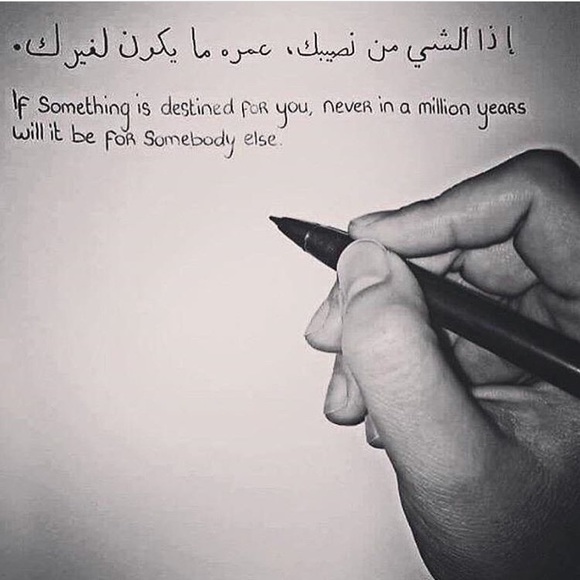 إذا الشي من نصيبك، عمره ما يكون لغيرك.
If Something is destined for you, never in a million years
will it be for Somebody else.